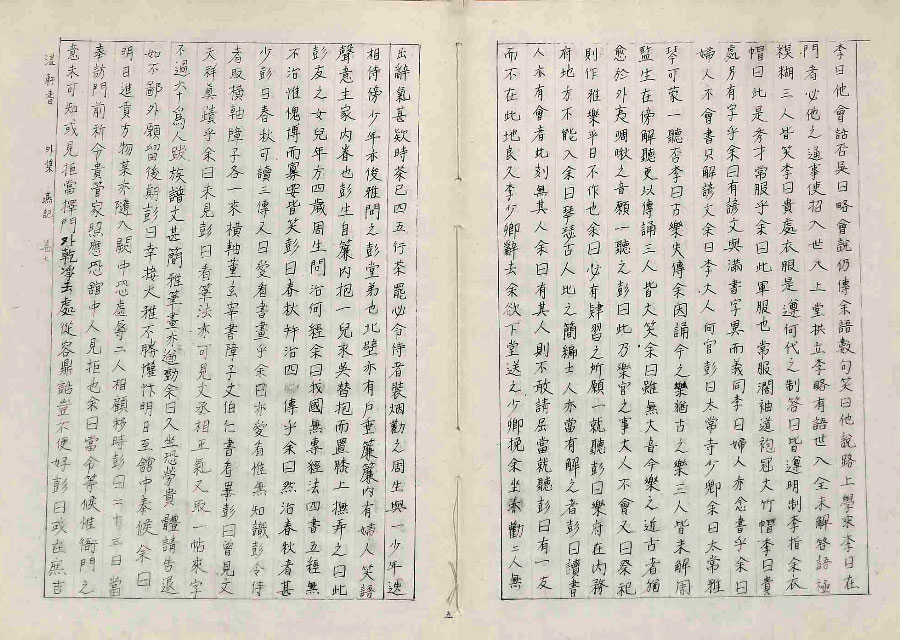 李曰他會話否吳曰略會說仍傳余語數句笑曰他說路上學來李曰在
門者必他之通事使招入世八上堂拱立李略有語世八全未解答語極
糢糊三人皆笑李曰貴處衣服是遵何代之制答曰皆遵明制李指余衣
帽曰此是秀才常服乎余曰此軍服也常服濶袖道袍冠大竹帽李曰貴
處另有字乎余曰有諺文與滿書字異而義同李曰婦人亦念書乎余曰
婦人不會書只解諺文余曰李大人何官彭曰太常寺少卿余曰太常雅
琴可蒙一聽否李曰古樂失傳余因誦今之樂猶古之樂三人皆未解周
監生在傍解聽更以傳誦三人皆大笑余曰雖無大音今樂之近古者猶
愈於外夷啁啾之音願一聽之彭曰此乃樂官之事大人不會又曰祭祀
則作雅樂平日不作也余曰必有肄習之所願一就聽彭曰樂府在內務
府地方不能入余曰琴瑟古人比之簡編士人亦當有解之者彭曰讀書
人本有會者此刻無其人余曰有其人則不敢請屈當就聽彭曰有一友
而不在此地良久李少卿辭去余欲下堂送之少卿挽余坐來勸二人無
出辭氣甚款時茶已四五行茶罷必令侍者裝烟勸之周生與一少年迭
相侍傍少年本俊雅問之彭堂弟也北壁亦有戶垂簾簾內有婦人笑語
聲意主家內眷也彭生自簾內抱一兒來吳替抱而置膝上撫弄之曰此
彭友之女兒年方四歲周生問治何經余曰我國無專經法四書五經無
不治惟愧博而寡要皆笑彭曰春秋幷治四傳乎余曰然治春秋者甚
少彭曰春秋可讀三傳又曰愛看書畫乎余曰亦愛看惟無知識彭令侍
者取橫軸障子各一來橫軸董玄宰書障子文伯仁書看畢彭曰曾見文
天祥眞蹟乎余曰未見彭曰看筆法亦可見文丞相正氣又取一帖來字
不過六十爲人跋族譜文甚簡雅筆畫亦遒勁余曰久坐恐勞貴體請告退
如不鄙外願留後期彭曰幸接大雅不勝懽忭明日至舘中奉候余曰
明日進貢方物菜亦隨入闕中恐虛辱二人相顧移時彭曰二十三日當
奉訪門前祈令貴管家照應恐舘中人見拒也余曰當令等候惟衙門之
意未可知或見拒當擇門外乾凈去處從容鼎話豈不便好彭曰政在庶吉
湛軒書 外集 燕記 卷七
五